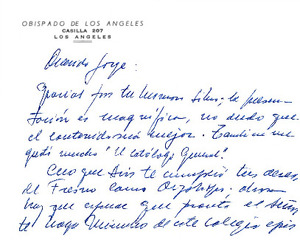 OBISPADO DE LOS ANGELES
CASILLA 207
LOS ANGELES
Querido Jorge:
Gracias por tu hermoso libro; la presen
tación es magnífica, no dudo que
el contenido será mejor. También me
gustó mucho "El Catálogo General".
Creo que Dios te cumplió tus deseos
de Fresno como Arzobispo; ahora
hay que esperar que pronto el Señor
te haga miembro de este colegio epis